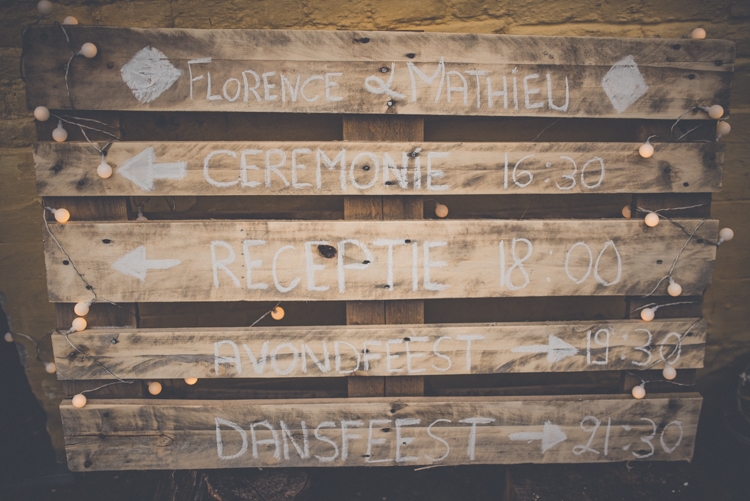 FLORENCE & MATHIEU
← CEREMONIE 16:30
← RECEPTIE 18:00
AVONDFEEST → 19:30
DANSFEEST → 21:30